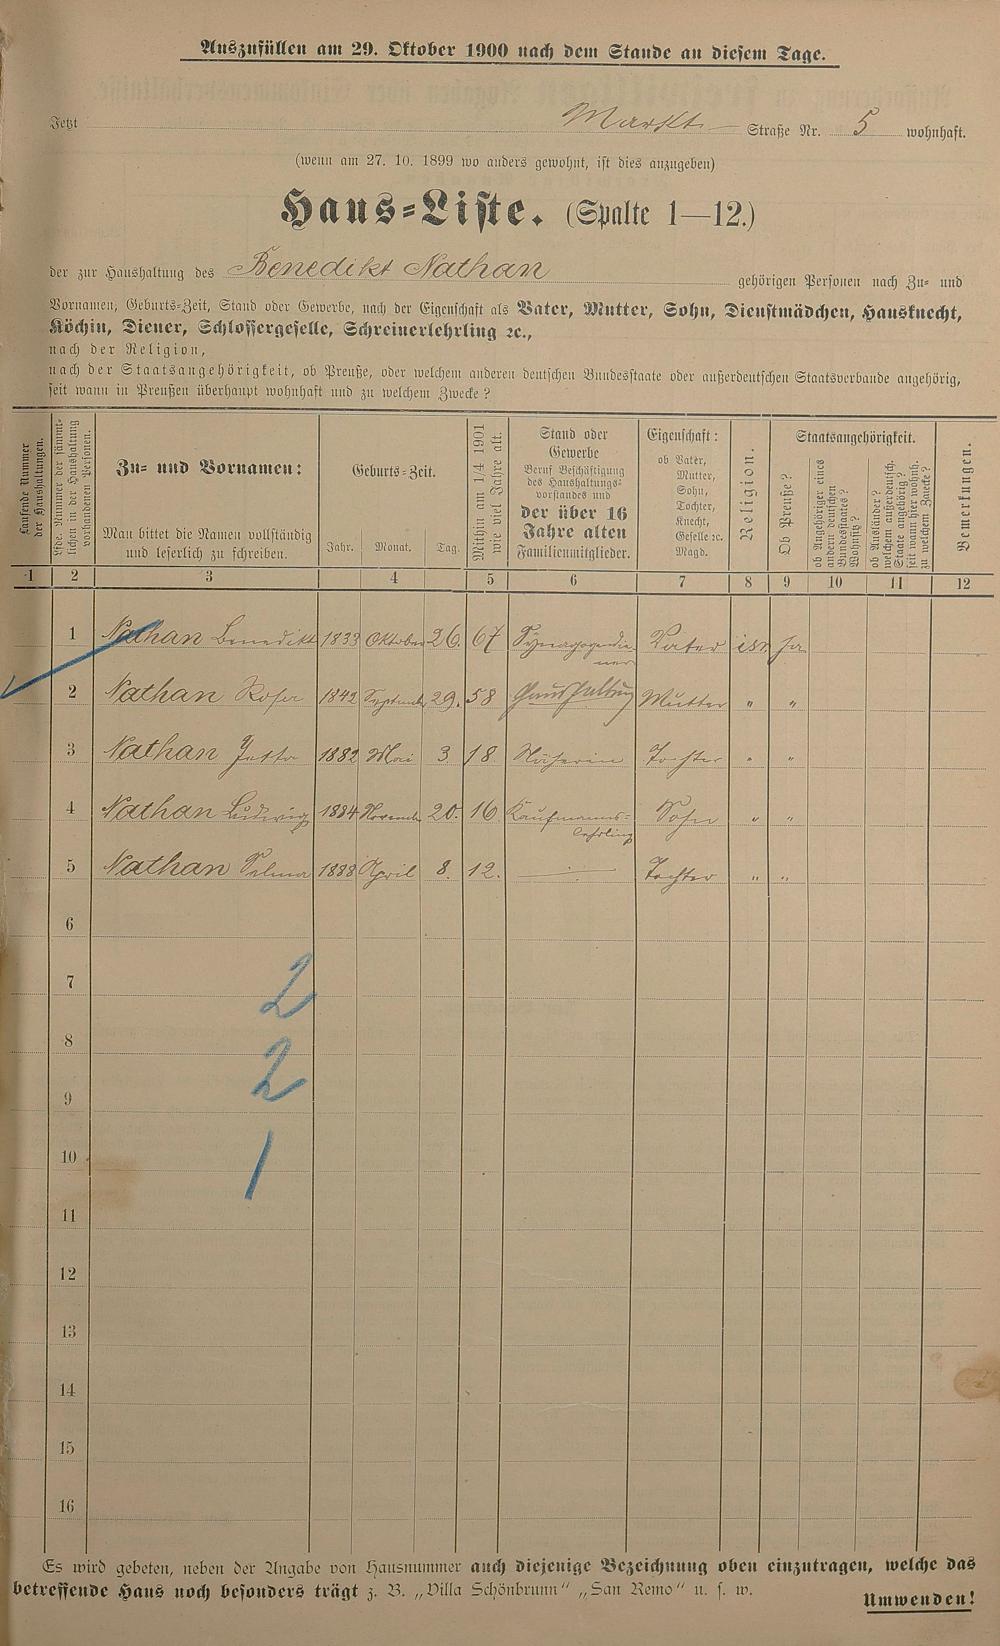 Auszufüllen am 29. Oktober 1900 nach dem Stande an diesem Tage.
Jetzt Markt Straße Nr. 5 wohnhaft.
(wenn am 27. 10. 1899 wo anders gewohnt, ist dies anzugeben)
Haus-Liste. (Spalte 1—12.)
der zur Haushaltung des Benedikt Nathan gehörigen Personen nach Zu- und
Vornamen, Geburts-Zeit, Stand oder Gewerbe, nach der Eigenschaft als Vater, Mutter, Sohn, Dienstmädchen, Hausknecht,
Köchin, Diener, Schlossergeselle, Schreinerlehrling ꝛc.,
nach der Religion,
nach der Staatsangehörigkeit, ob Preuße, oder welchem anderen deutschen Bundesstaate oder außerdeutschen Staatsverbande angehörig,
seit wann in Preußen überhaupt wohnhaft und zu welchem Zwecke?
Laufende Nummer
der Haushaltungen.
Lfde. Nummer der sämmt-
lichen in der Haushaltung
vorhandenen Personen.
Zu- und Vornamen:
Man bittet die Namen vollständig
und leserlich zu schreiben.
Geburts-Zeit.
Jahr. Monat. Tag.
Mithin am 1/4 1901
wie viel Jahre alt.
Stand oder
Gewerbe
Beruf Beschäftigung
des Haushaltungs-
vorstandes und
der über 16
Jahre alten
Familienmitglieder.
Eigenschaft:
ob Vater,
Mutter,
Sohn,
Tochter,
Knecht,
Geselle ꝛc.
Magd.
Religion.
Staatsangehörigkeit.
Ob Preuße?
ob Angehöriger eines
andern deutschen
Bundesstaates?
Wohnsitz?
ob Ausländer?
welchem außerdeutsch.
Staate angehörig?
seit wann hier wohnh.
zu welchem Zwecke?
Bemerkungen.
1 2 3 4 5 6 7 8 9 10 11 12
1 Nathan Benedikt 1833 Oktober 26. 67 Synagogendie-
ner Vater isr. ja
2 Nathan Rosa 1842 Septemb. 29. 58 Haushaltung Mutter " "
3 Nathan Jetta 1882 Mai 3. 18 Näherin Tochter " "
4 Nathan Ludwig 1884 Novemb. 20. 16 Kaufmanns-
lehrling Sohn " "
5 Nathan Selma 1888 April 8. 12. — Tochter " "
6
7 2
8 2
9
10 1
11
12
13
14
15
16
Es wird gebeten, neben der Angabe von Hausnummer auch diejenige Bezeichnung oben einzutragen, welche das
betreffende Haus noch besonders trägt z. B. „Villa Schönbrunn“ „San Remo“ u. s. w.
Umwenden!